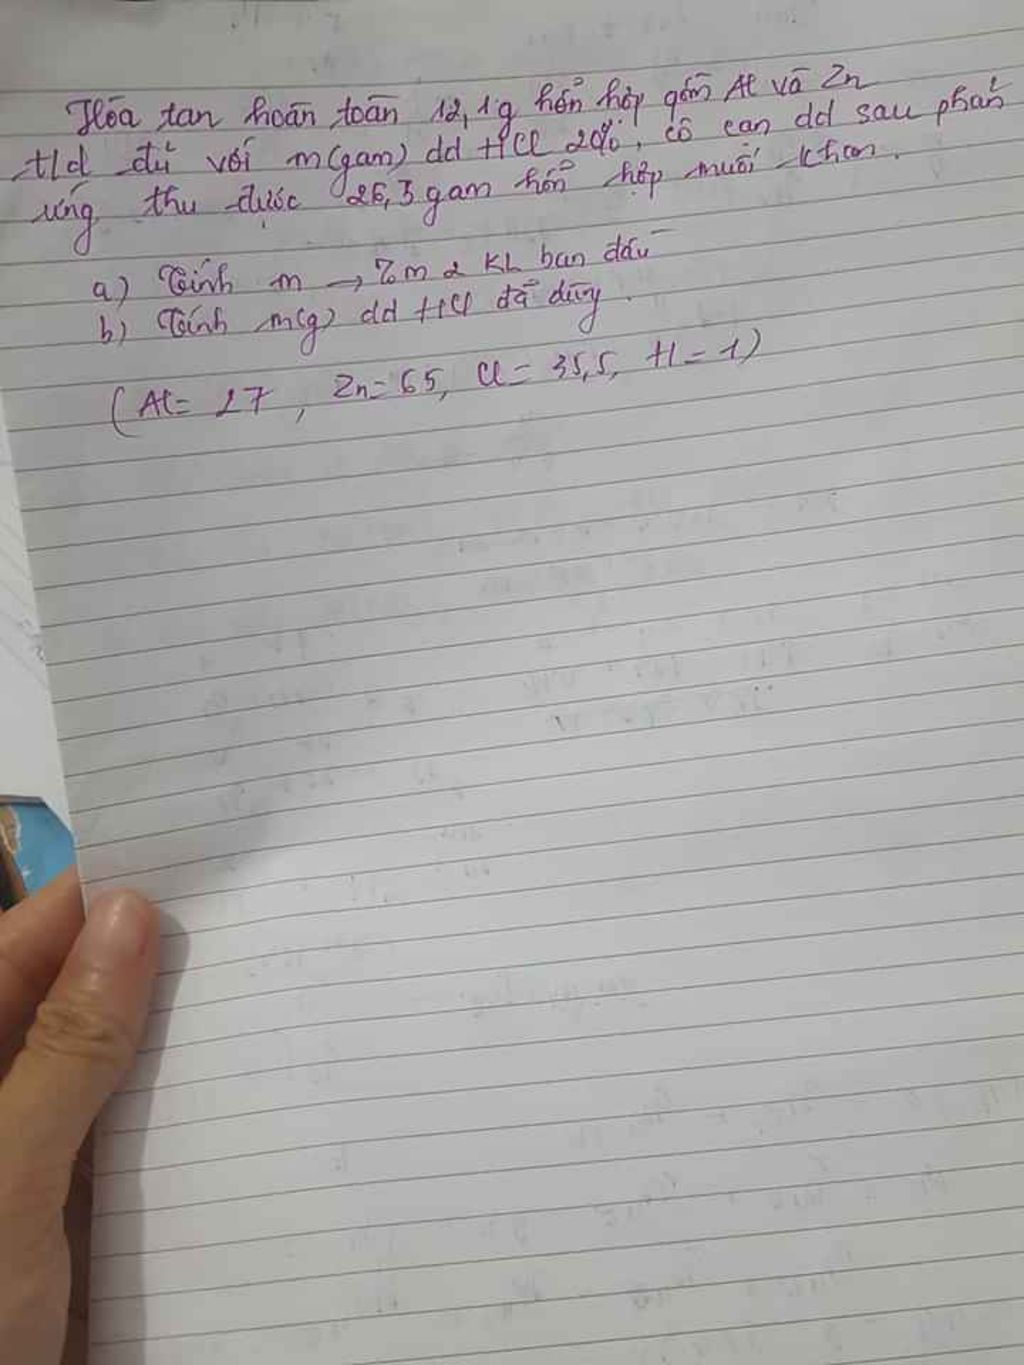 Hòa tan hoàn toàn 12,1g hỗn hợp gồm Al và Zn
t/d đủ với m(gam) dd HCl 20%, cô cạn dd sau phản
ứng thu được 26,3 gam hỗn hợp muối khan.
a) Tính m → %m 2 KL ban đầu
b) Tính m(g) dd HCl đã dùng.
(Al = 27, Zn = 65, Cl = 35,5, H = 1)